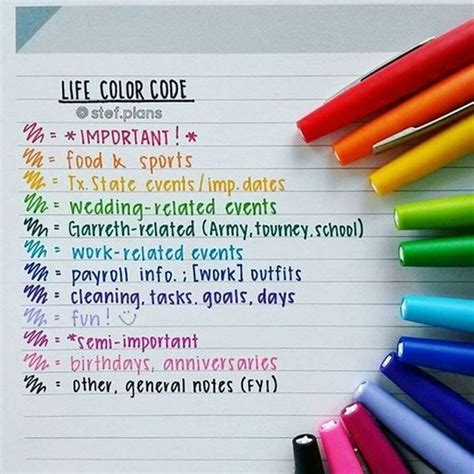 LIFE COLOR CODE
@stef.plans
= *IMPORTANT!*
= food & sports
= Tx. State events/imp. dates
= wedding-related events
= Garreth-related (Army, tourney, school)
= work-related events
= payroll info.; [work] outfits
= cleaning, tasks, goals, days
= fun!
= *semi-important
= birthdays, anniversaries
= other, general notes (FYI)